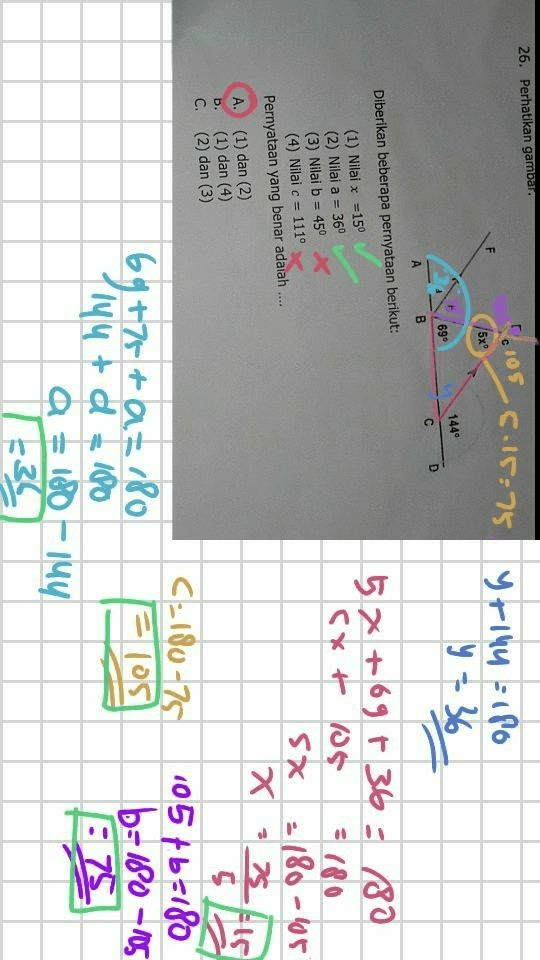 26. Perhatikan gambar.
F
E
c
105
5x°
5.15=75
b
A
B
69°
y
144°
C
D
Diberikan beberapa pernyataan berikut:
(1) Nilai x =15°
(2) Nilai a = 36°
(3) Nilai b = 45°
(4) Nilai c = 111°
Pernyataan yang benar adalah ....
A. (1) dan (2)
B. (1) dan (4)
C. (2) dan (3)
y+144=180
y=36
5x+69+36=180
5x+105=180
5x=180-105
x=75/5=15
c=180-75
=105
105+b=180
b=180-105
=75
69+75+a=180
144+a=180
a=180-144
=36